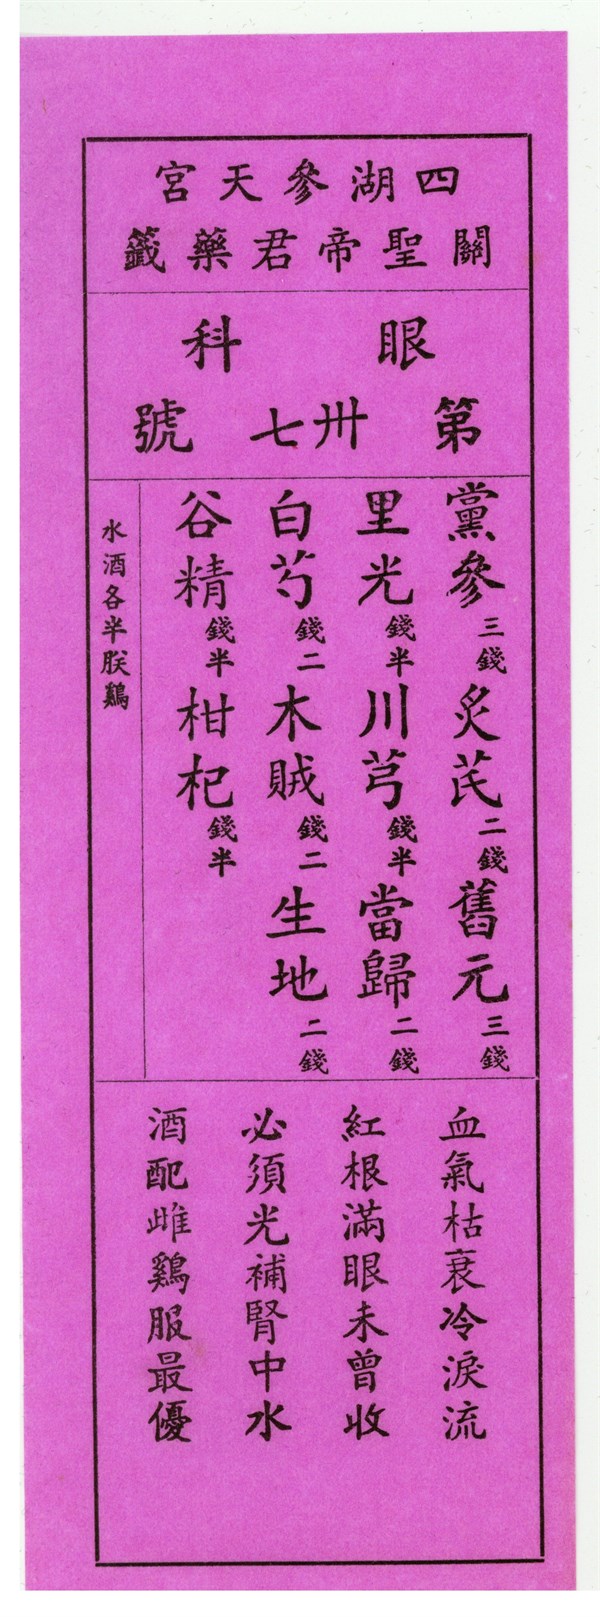 四湖參天宮
關聖帝君藥籤
眼科
第卅七號
黨參三錢炙芪二錢舊元三錢
里光錢半川芎錢半當歸二錢
白芍錢二木賊錢二生地二錢
谷精錢半柑杞錢半
水酒各半朕鷄
血氣枯衰冷淚流
紅根滿眼未曾收
必須光補腎中水
酒配雌鷄服最優